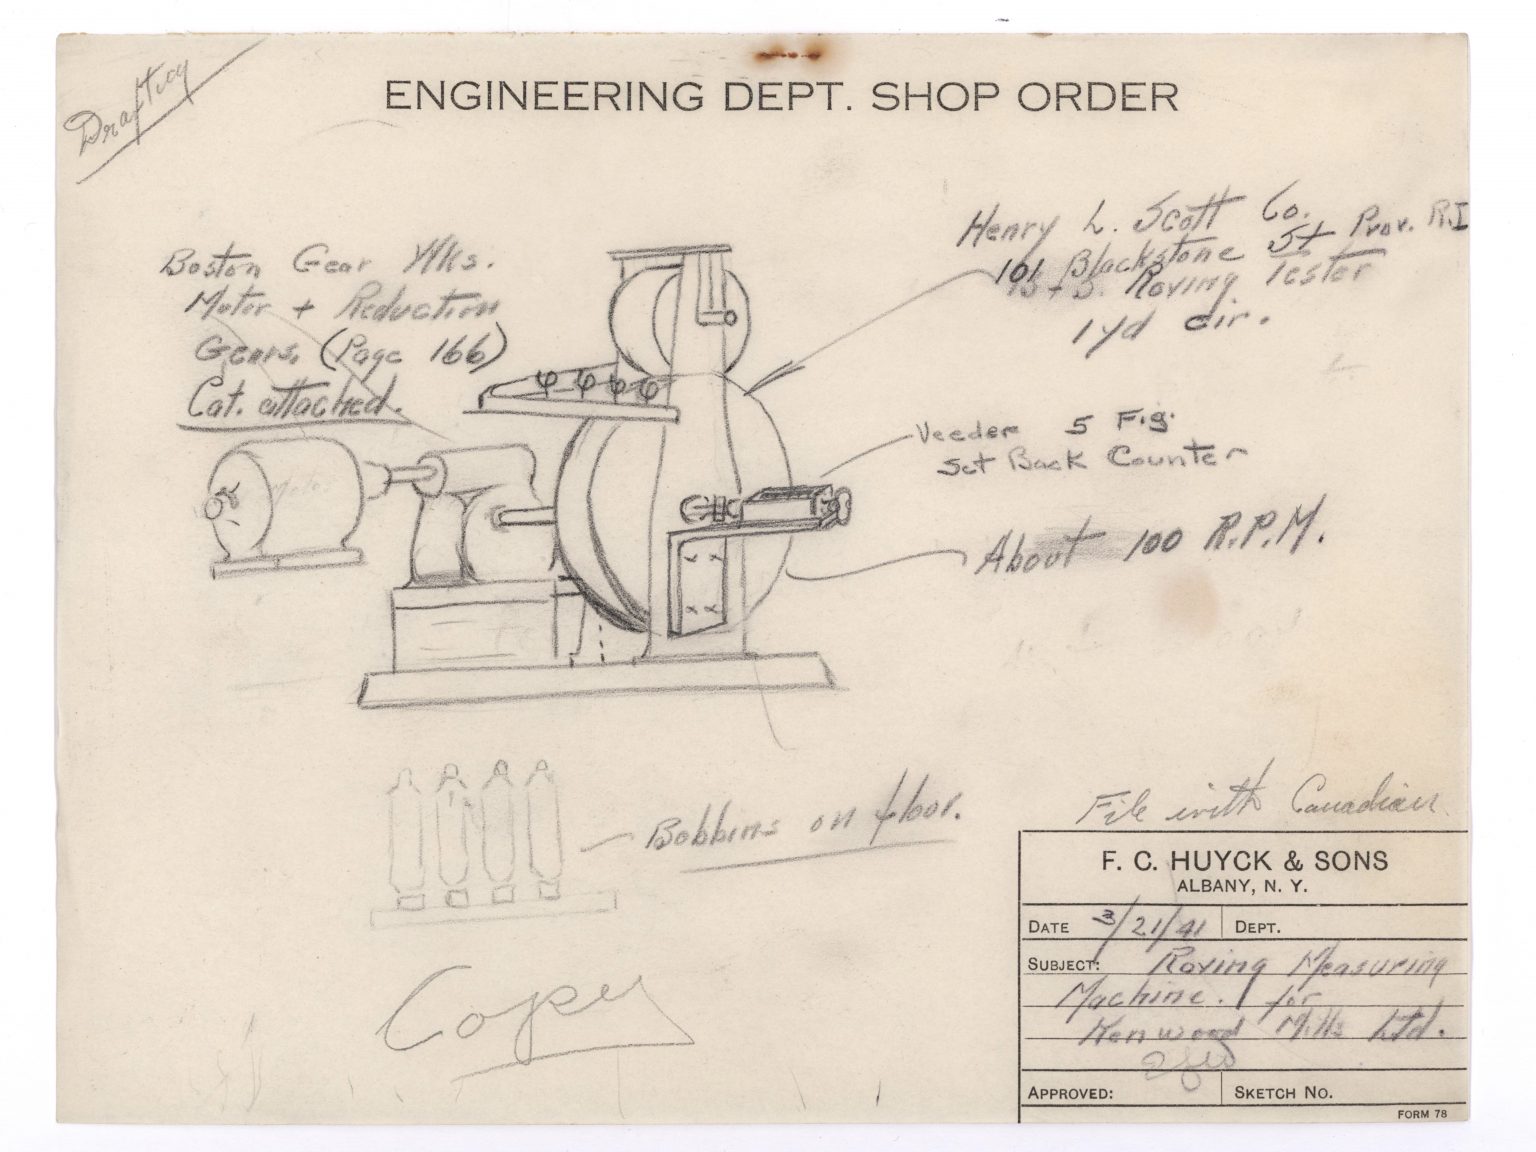 Drafting
ENGINEERING DEPT. SHOP ORDER
Henry L. Scott Co.
101 Blackstone St Prov. R.I
Roving Tester
1 yd cir.
Boston Gear Wks.
Motor + Reduction
Gears. (Page 166)
Cat. attached.
Veeder 5 Fig.
Set Back Counter
Motor
About 100 R.P.M.
Bobbins on floor.
File with Canadian
Copy
F. C. HUYCK & SONS
ALBANY, N. Y.
DATE 3/21/41 DEPT.
SUBJECT: Roving Measuring
Machine. for
Kenwood Mills Ltd.
APPROVED: SKETCH NO.
FORM 78